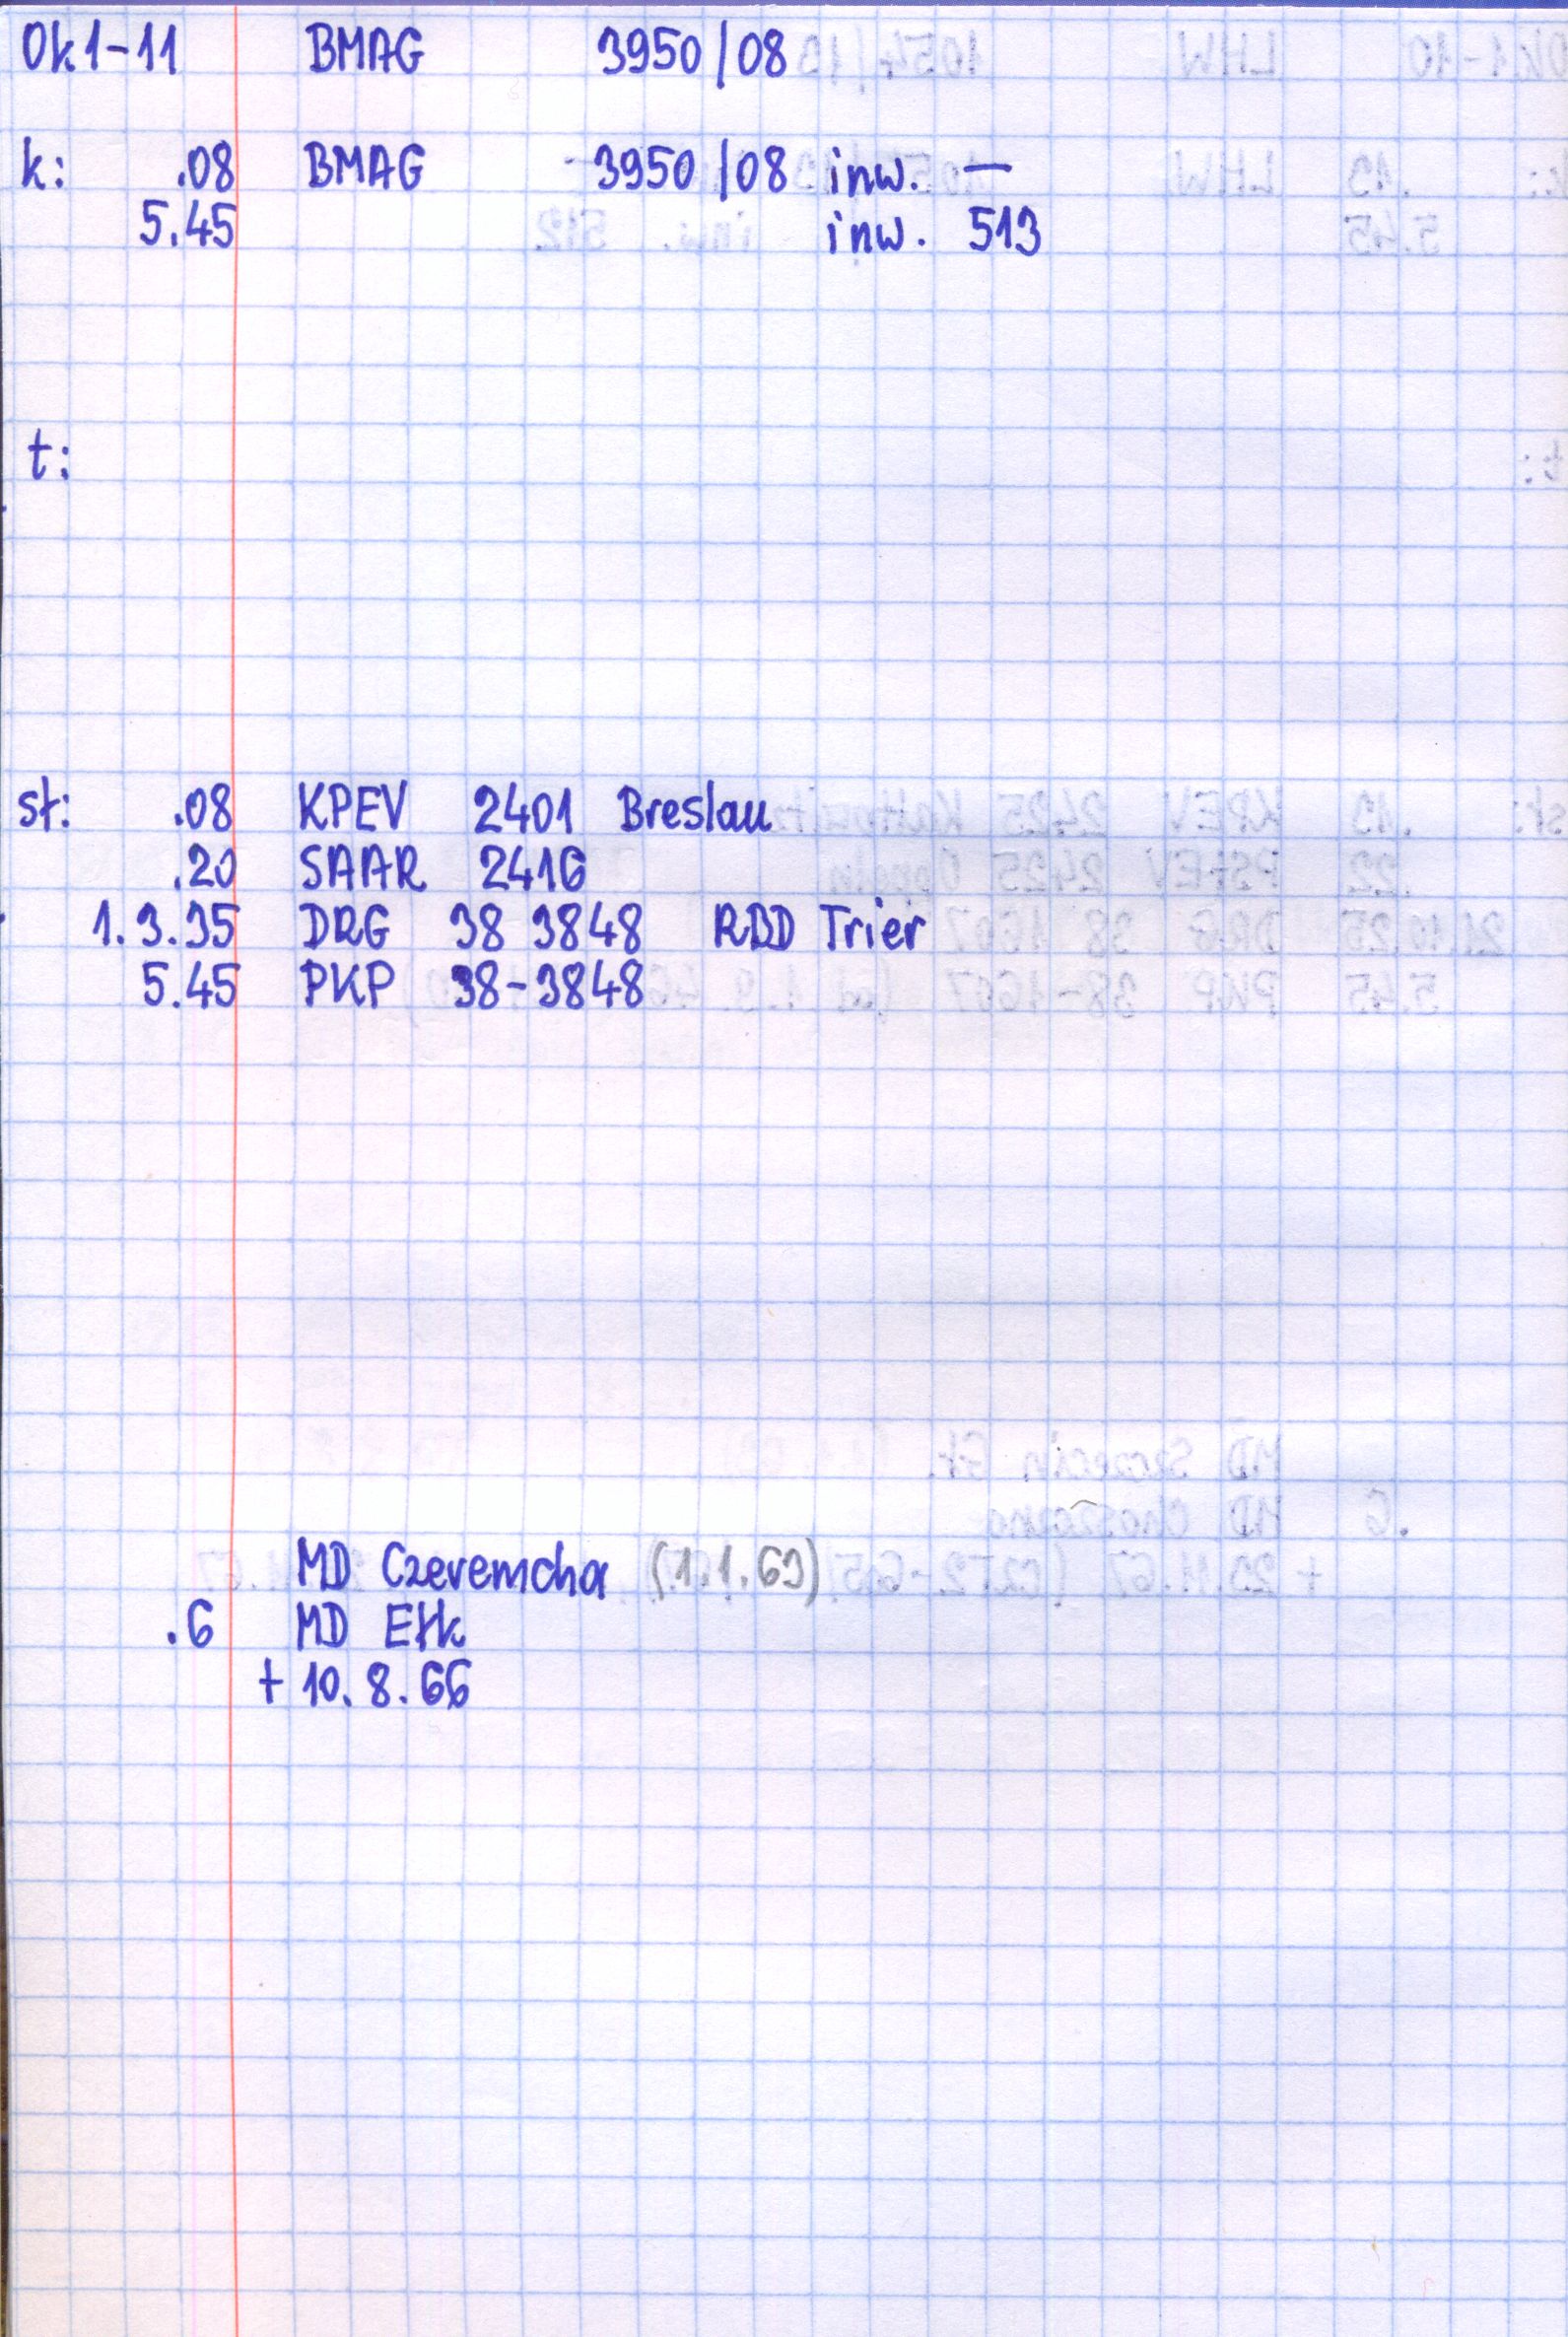 Ok1-11 BMAG 3950/08
k: .08 BMAG 3950/08 inw. —
5.45 inw. 513
t:
st: .08 KPEV 2401 Breslau
.20 SAAR 2416
1.3.35 DRG 38 3848 RBD Trier
5.45 PKP 38-3848
MD Czeremcha (1.1.63)
.6 MD Ełk
+ 10.8.66